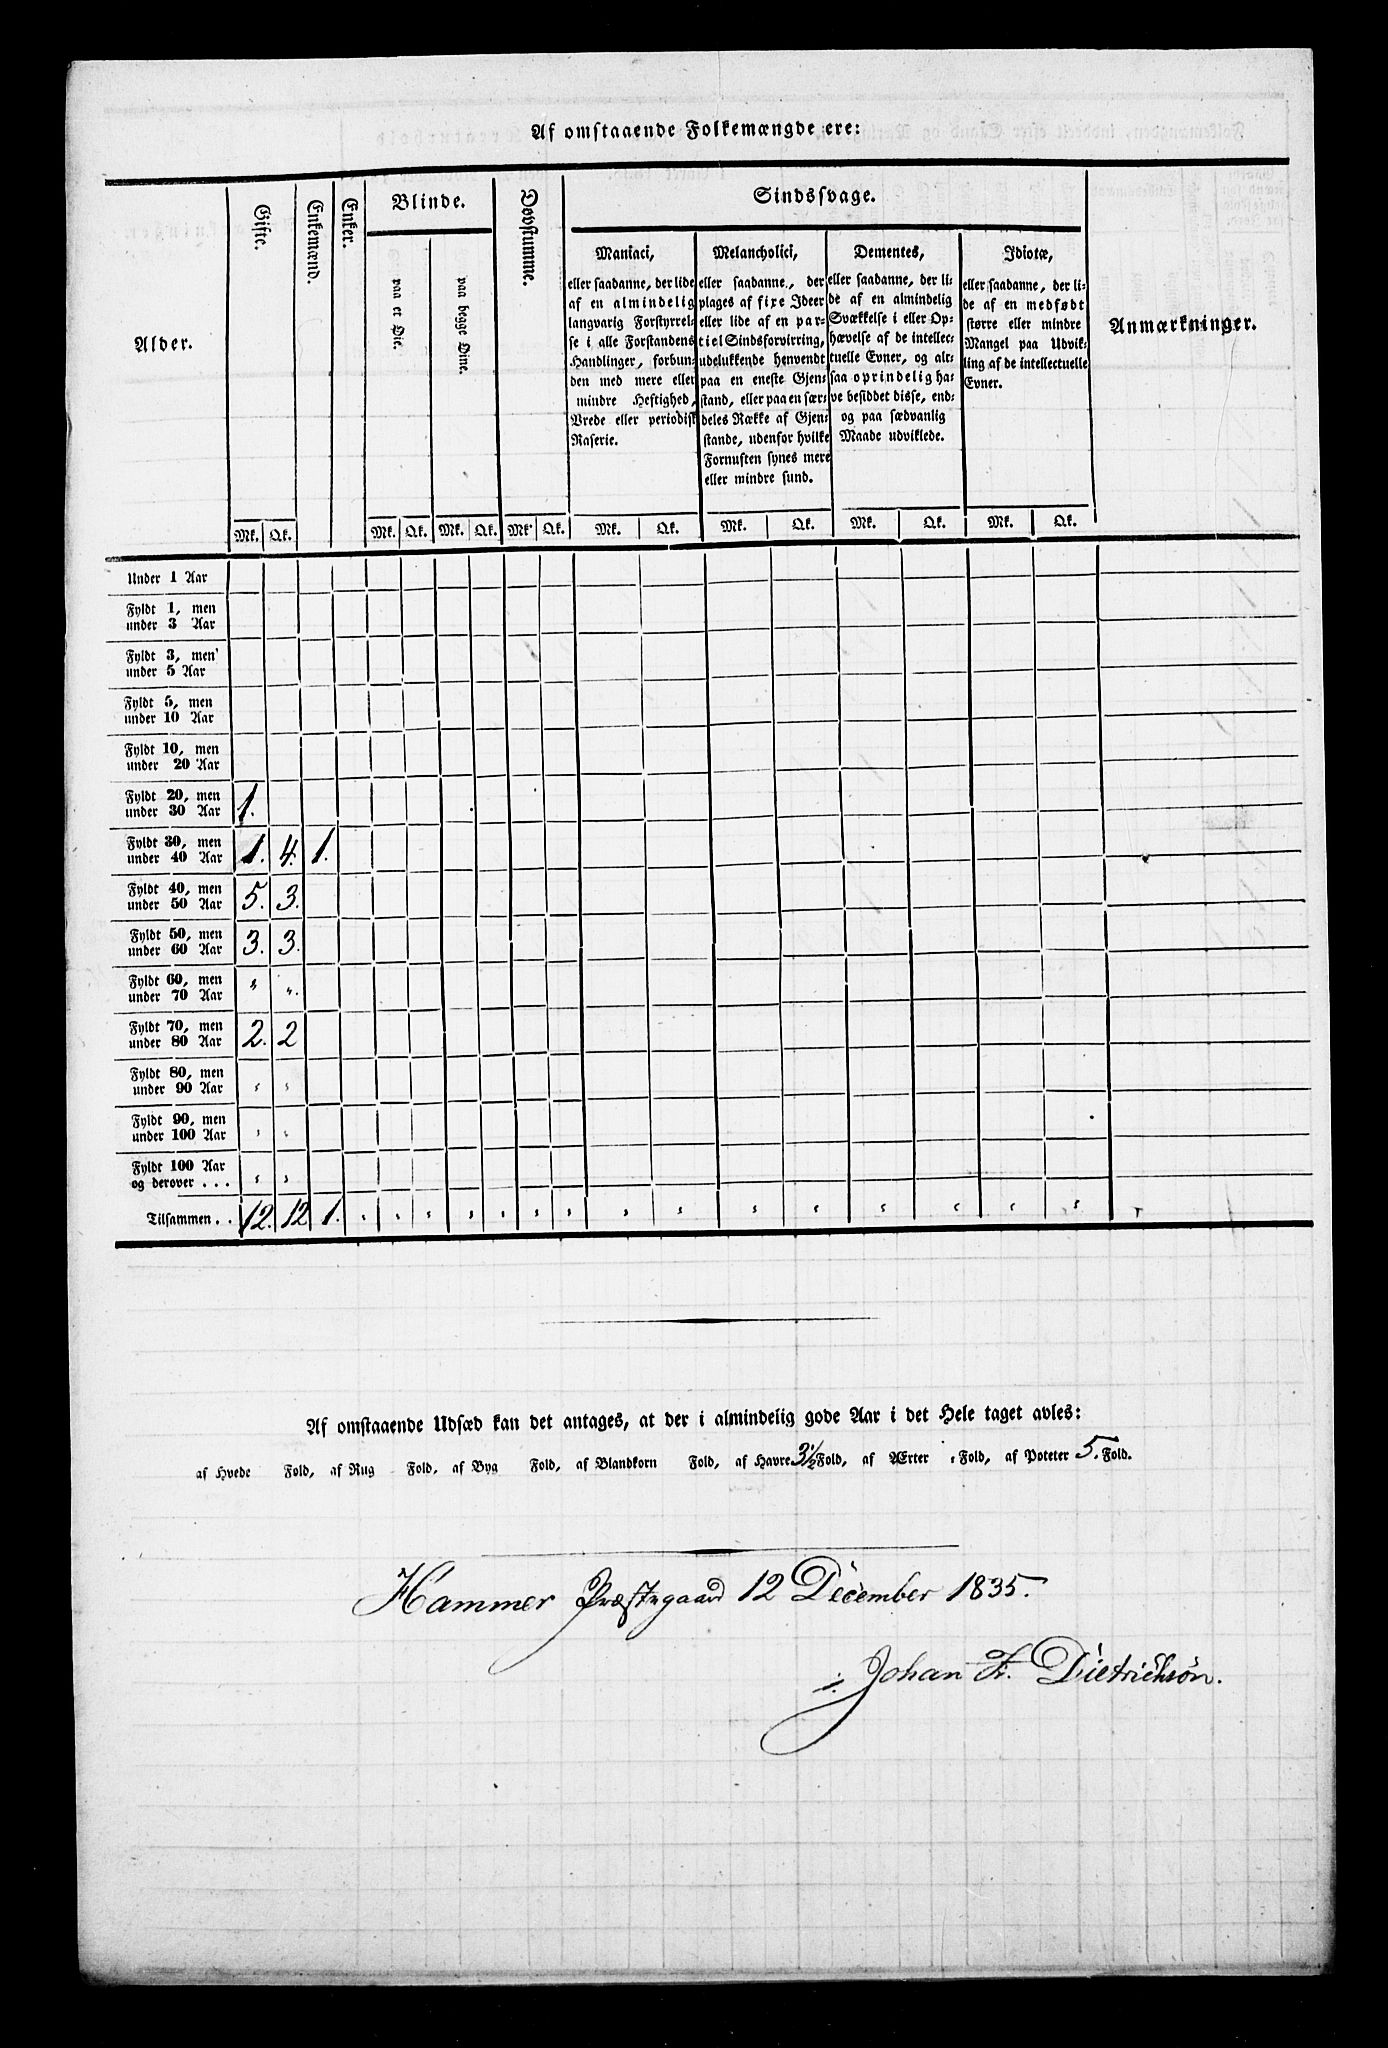 Af omstaaende Folkemængde ere:
Alder.
Gifte.
Enkemænd.
Enker.
Blinde.
paa et Øie.
paa begge Øine.
Døvstumme.
Sindssvage.
Maniaci,
eller saadanne, der lide
af en almindelig
langvarig Forstyrrel-
se i alle Forstandens
Handlinger, forbun-
den med mere eller
mindre Heftighed,
Vrede eller periodisk
Raserie.
Melancholici,
eller saadanne, der
plages af fixe Ideer
eller lide af en par-
tiel Sindsforvirring,
udelukkende henvendt
paa en eneste Gjen-
stand, eller paa en sær-
deles Række af Gjen-
stande, udenfor hvilke
Fornuften synes mere
eller mindre sund.
Dementes,
eller saadanne, der li-
de af en almindelig
Svækkelse i eller Op-
hævelse af de intellec-
tuelle Evner, og alt-
saa oprindelig ha-
ve besiddet disse, end-
og paa sædvanlig
Maade udviklede.
Idiotæ,
eller saadanne, der li-
de af en medfødt
større eller mindre
Mangel paa Udvik-
ling af de intellectuelle
Evner.
Anmærkninger.
Mk. Qk. Mk. Qk. Mk. Qk. Mk. Qk. Mk. Qk. Mk. Qk. Mk. Qk. Mk. Qk.
Under 1 Aar
Fyldt 1, men
under 3 Aar
Fyldt 3, men
under 5 Aar
Fyldt 5, men
under 10 Aar
Fyldt 10, men
under 20 Aar
Fyldt 20, men
under 30 Aar 1.
Fyldt 30, men
under 40 Aar 1. 4. 1.
Fyldt 40, men
under 50 Aar 5. 3.
Fyldt 50, men
under 60 Aar 3. 3.
Fyldt 60, men
under 70 Aar " "
Fyldt 70, men
under 80 Aar 2. 2
Fyldt 80, men
under 90 Aar " "
Fyldt 90, men
under 100 Aar " "
Fyldt 100 Aar
og derover . . . " "
Tilsammen . . 12. 12 1. " " " " " " " " " " " " " " "
Af omstaaende Udsæd kan det antages, at der i almindelig gode Aar i det Hele taget avles:
af Hvede Fold, af Rug Fold, af Byg Fold, af Blandkorn Fold, af Havre 3½ Fold, af Ærter " Fold, af Poteter 5. Fold.
Hammer Præstegaard 12 December 1835.
Johan F. Dietrichson.